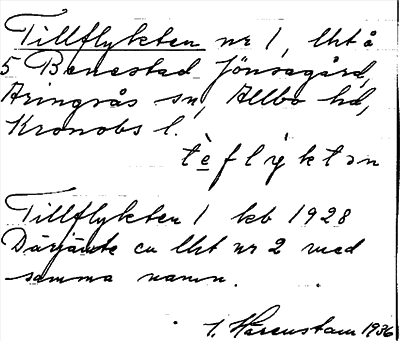 Tillflykten nr 1, lht å
5 Benestad Jönsagård,
Aringsås sn, Allbo hd,
Kronobs l.
tèflỳktən
Tillflykten 1 kb 1928
Därjämte en lht nr 2 med
samma namn.
I. Härenstam 1936